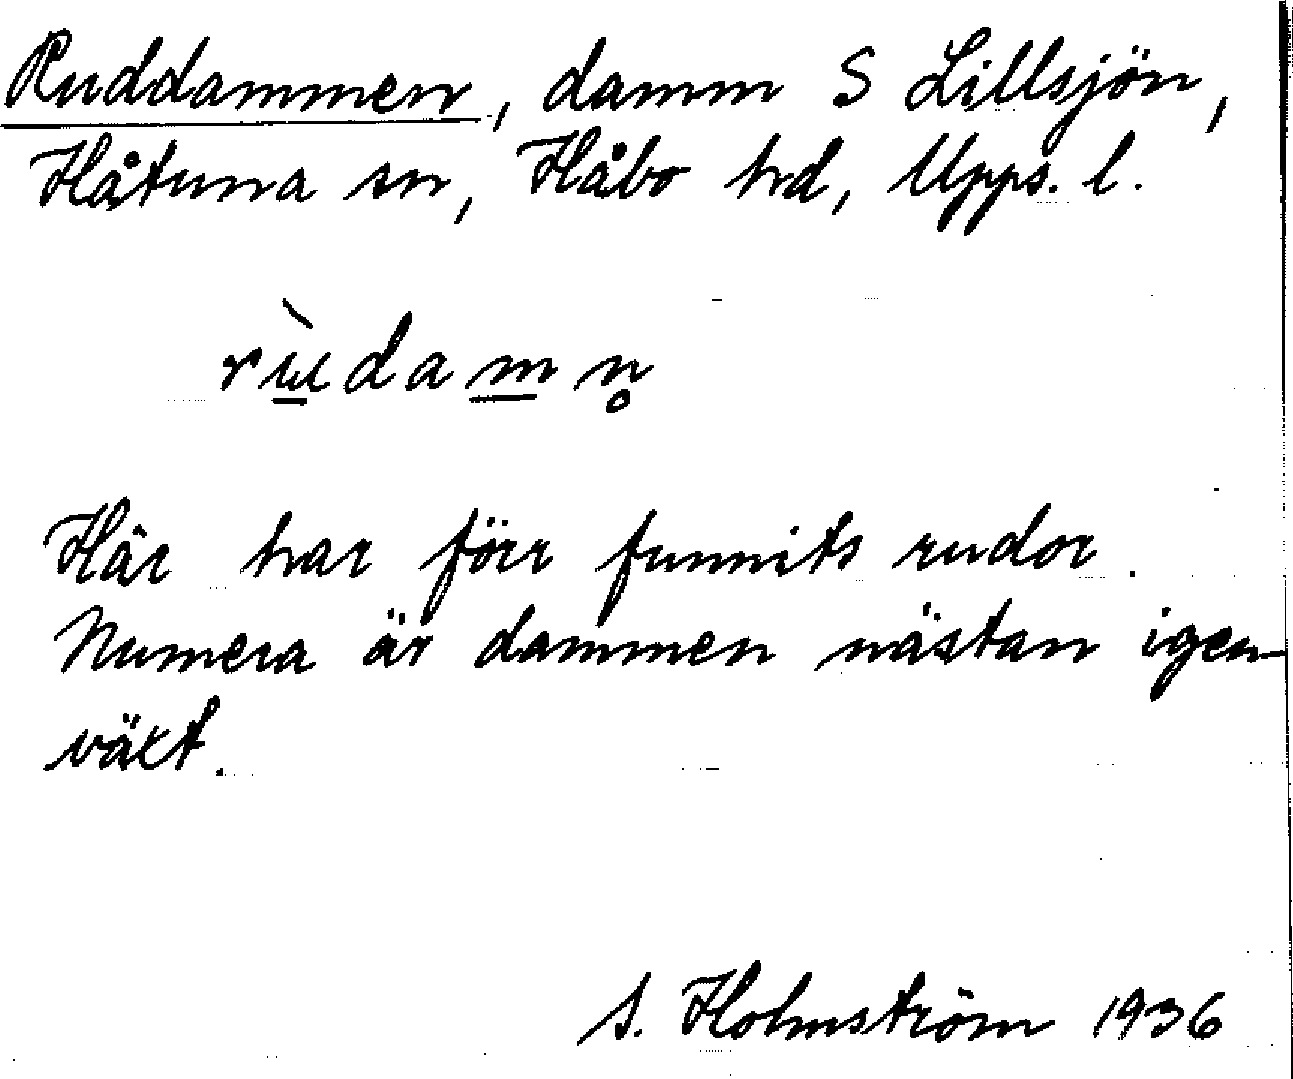 Ruddammen, damm S Lillsjön,
Håtuna sn, Håbo hd, Upps. l.
rù̱dam̱n̥
Här har förr funnits rudor.
Numera är dammen nästan igen-
växt.
S. Holmström 1936